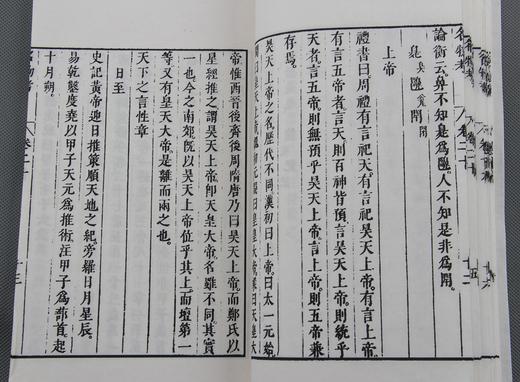 論衡云鼻不知臭爲齆人不知是非爲閉。
上帝
禮書曰周禮有言祀天有言祀昊天上帝有言上帝
有言五帝者言天則百神皆預言昊天上帝則統乎
天者言五帝則無預乎昊天上帝言上帝則五帝兼
存焉。
昊天上帝之名歷代不同漢初曰上帝曰太一元始
曰皇天上帝魏初元間曰皇皇天帝梁曰天皇大
帝惟西晉後齊後周隋唐乃曰昊天上帝而鄭氏以
星經推之謂昊天上帝卽天皇大帝名雖不同其實
一也今之南郊旣以昊天上帝位乎其上而壇第一
等又有皇天大帝是離而兩之也。
天下之言性章
日至
史記黃帝迎日推策順天地之紀旁羅日月星辰。
易乾鑿度堯以甲子天元爲推術注甲子爲蔀首起
十月朔。